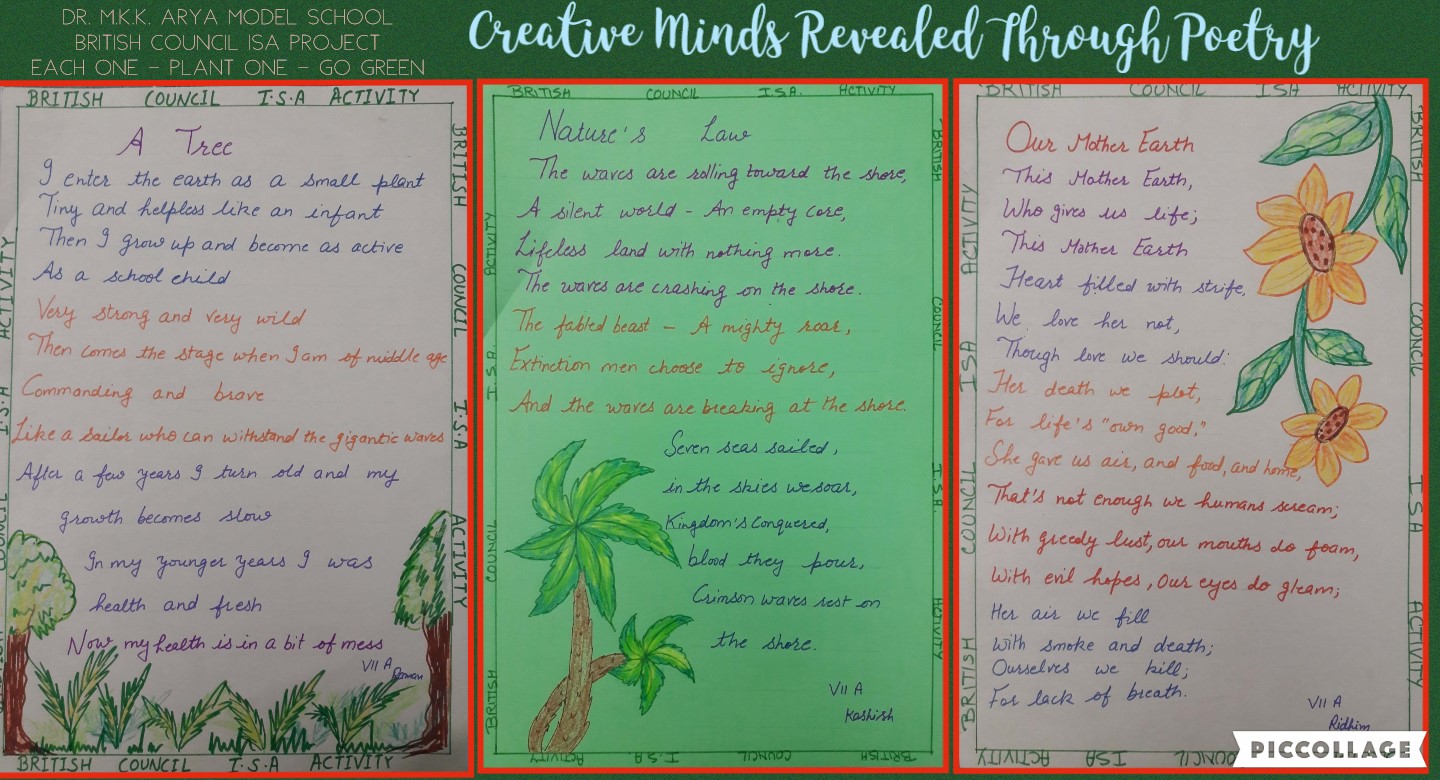 DR. M.K.K. ARYA MODEL SCHOOL
BRITISH COUNCIL ISA PROJECT
EACH ONE - PLANT ONE - GO GREEN
Creative Minds Revealed Through Poetry
BRITISH COUNCIL I.S.A ACTIVITY
A Tree
I enter the earth as a small plant
Tiny and helpless like an infant
Then I grow up and become as active
As a school child
Very strong and very wild
Then comes the stage when I am of middle age
Commanding and brave
Like a sailor who can withstand the gigantic waves
After a few years I turn old and my
growth becomes slow
In my younger years I was
health and fresh
Now my health is in a bit of mess
VII A
BRITISH COUNCIL I.S.A ACTIVITY
COUNCIL I.S.A ACTIVITY
BRITISH COUNCIL I.S.A ACTIVITY
BRITISH COUNCIL I.S.A. ACTIVITY
Nature's Law
The waves are rolling toward the shore,
A silent world - An empty core,
Lifeless land with nothing more.
The waves are crashing on the shore.
The fabled beast - A mighty roar,
Extinction men choose to ignore,
And the waves are breaking at the shore.
Seven seas sailed,
in the skies we soar,
Kingdom's conquered,
blood they pour,
Crimson waves rest on
the shore.
VII A
Kashish
BRITISH COUNCIL I.S.A. ACTIVITY
BRITISH COUNCIL I.S.A. ACTIVITY
BRITISH COUNCIL I.S.A. ACTIVITY
BRITISH COUNCIL ISA ACTIVITY
Our Mother Earth
This Mother Earth,
Who gives us life;
This Mother Earth
Heart filled with strife,
We love her not,
Though love we should:
Her death we plot,
For life's "own good,"
She gave us air, and food, and home,
That's not enough we humans scream;
With greedy lust, our mouths do foam,
With evil hopes, Our eyes do gleam;
Her air we fill
With smoke and death;
Ourselves we kill;
For lack of breath.
VII A
Ridhim
BRITISH COUNCIL ISA ACTIVITY
BRITISH COUNCIL ISA ACTIVITY
COUNCIL ISA ACTIVITY
PICCOLLAGE